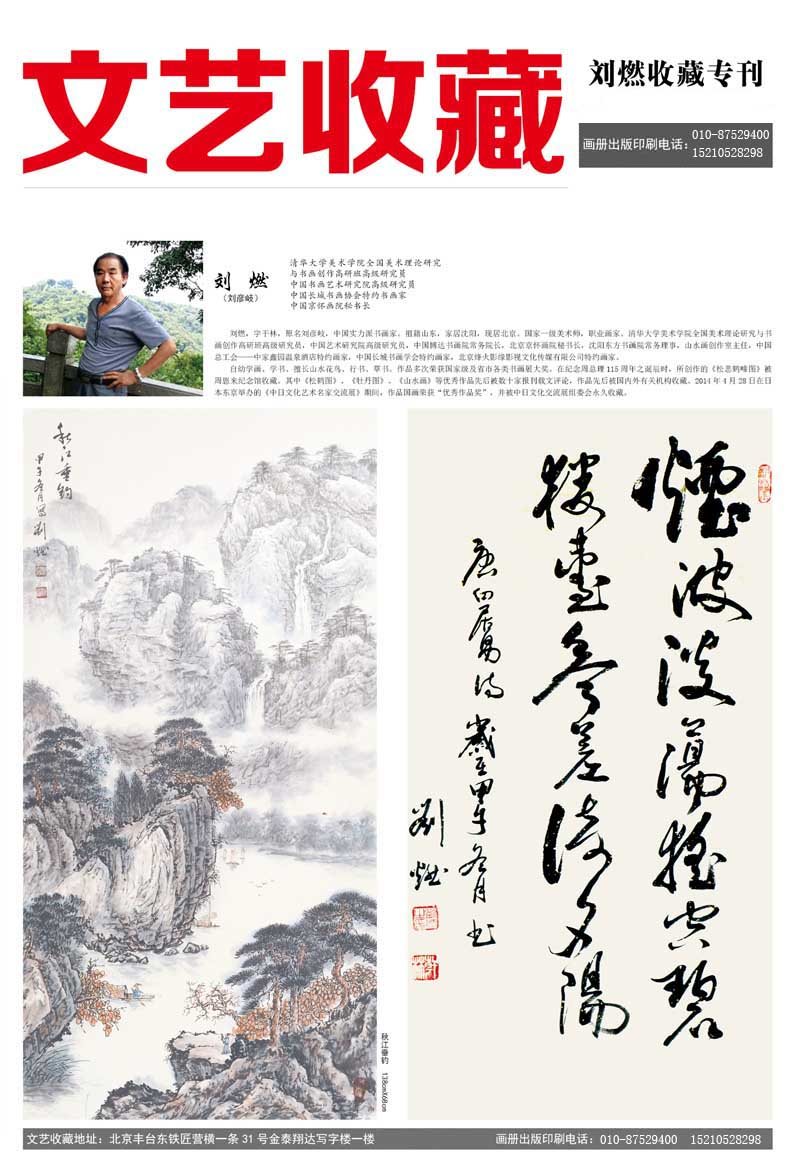 文艺收藏
刘燃收藏专刊
画册出版印刷电话：010-87529400
15210528298
刘 燃
（刘彦岐）
清华大学美术学院全国美术理论研究
与书画创作高研班高级研究员
中国书画艺术研究院高级研究员
中国长城书画协会特约书画家
中国京怀画院秘书长
刘燃，字于林，原名刘彦岐，中国实力派书画家。祖籍山东，家居沈阳，现居北京。国家一级美术师，职业画家。清华大学美术学院全国美术理论研究与书
画创作高研班高级研究员，中国艺术研究院高级研究员，中国博达书画院常务院长，北京京怀画院秘书长，沈阳东方书画院常务理事，山水画创作室主任，中国
总工会——中家鑫园温泉酒店特约画家，中国长城书画学会特约画家，北京烽火影缘影视文化传媒有限公司特约画家。
自幼学画，学书。擅长山水花鸟，行书，草书。作品多次荣获国家级及省市各类书画展大奖。在纪念周总理 115 周年之诞辰时，所创作的《松悬鹤峰图》被
周恩来纪念馆收藏。其中《松鹤图》、《牡丹图》、《山水画》等优秀作品先后被数十家报刊载文评论，作品先后被国内外有关机构收藏。2014 年 4 月 28 日在日
本东京举办的《中日文化艺术名家交流展》期间，作品国画荣获“优秀作品奖”，并被中日文化交流展组委会永久收藏。
秋江垂钓
甲午冬月写刘燃
秋江垂钓 138cmX68cm
煙波淡蕩摇空碧
楼臺参差倚夕陽
唐白居易诗 歲在甲午冬月书
劉燃
文艺收藏地址：北京丰台东铁匠营横一条 31 号金泰翔达写字楼一楼
画册出版印刷电话：010-87529400 15210528298